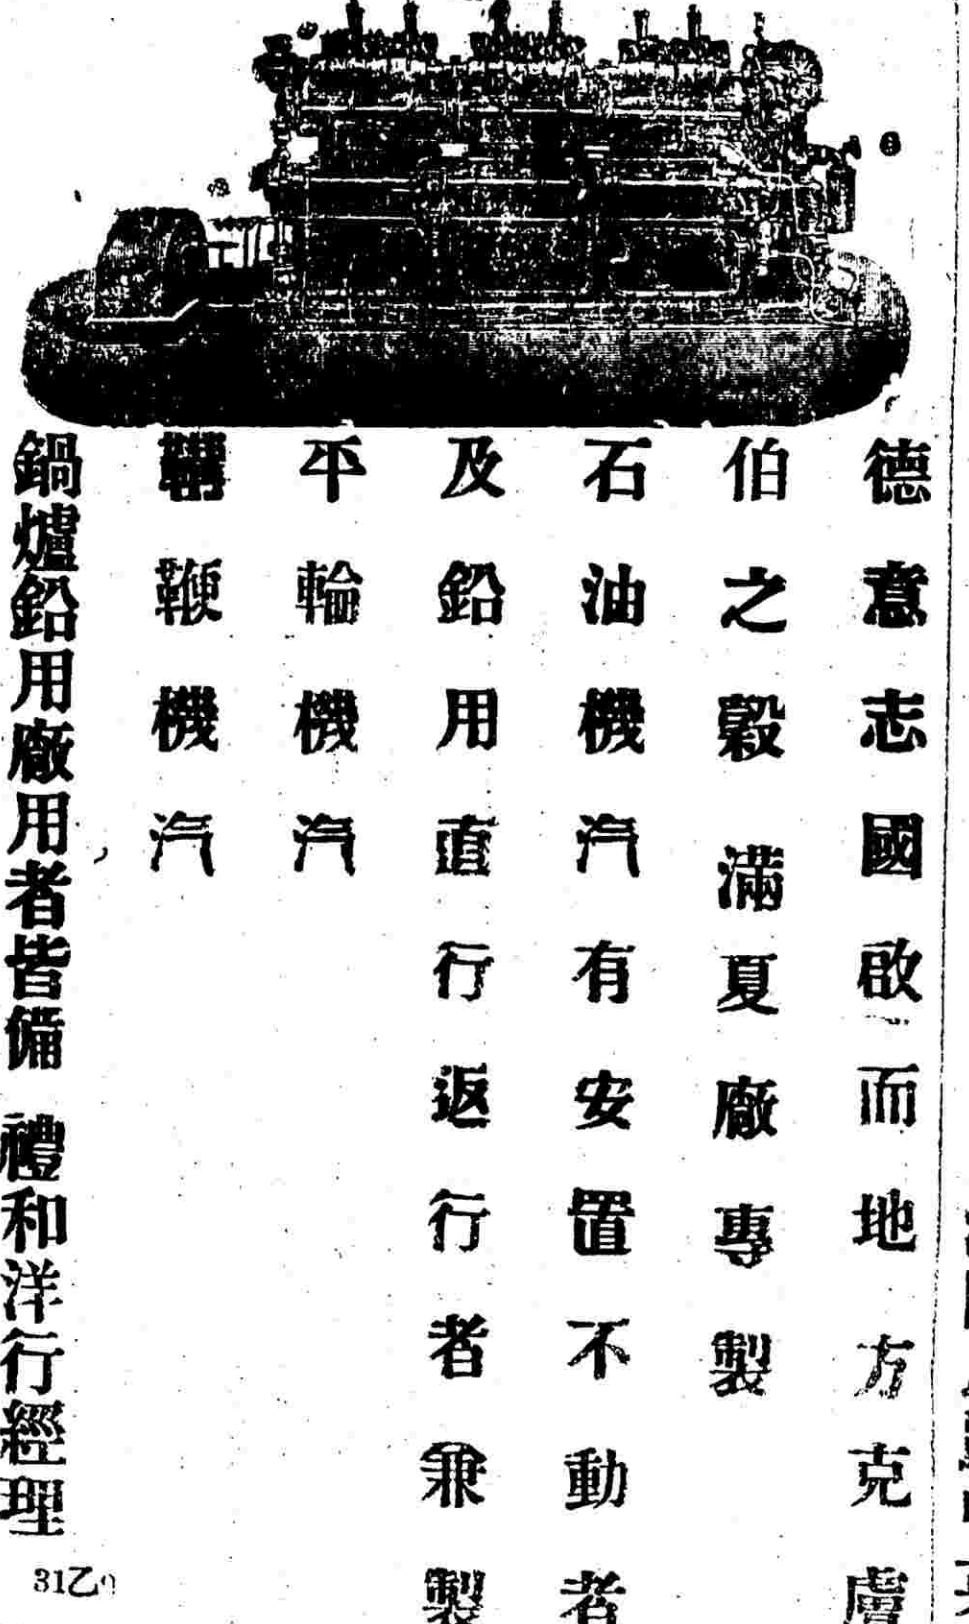 德意志國啟而地方克虜
伯之穀滿夏廠專製
石油機汽有安置不動者
及鉛用直行返行者兼製
平輪機汽
鞲鞭機汽
鍋爐鉛用廠用者皆備 禮和洋行經理
31乙